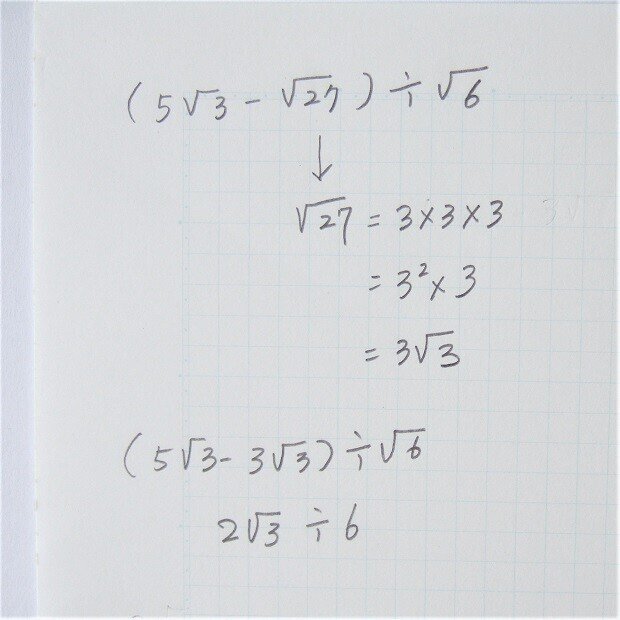 (5√3 - √27) ÷ √6
↓
√27 = 3×3×3
= 3²×3
= 3√3
(5√3 - 3√3) ÷ √6
2√3 ÷ 6